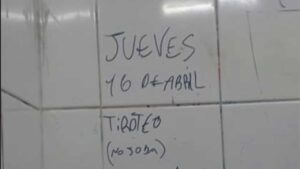 JUEVES
16 DE ABRIL
TIROTEO
(NO JODA)